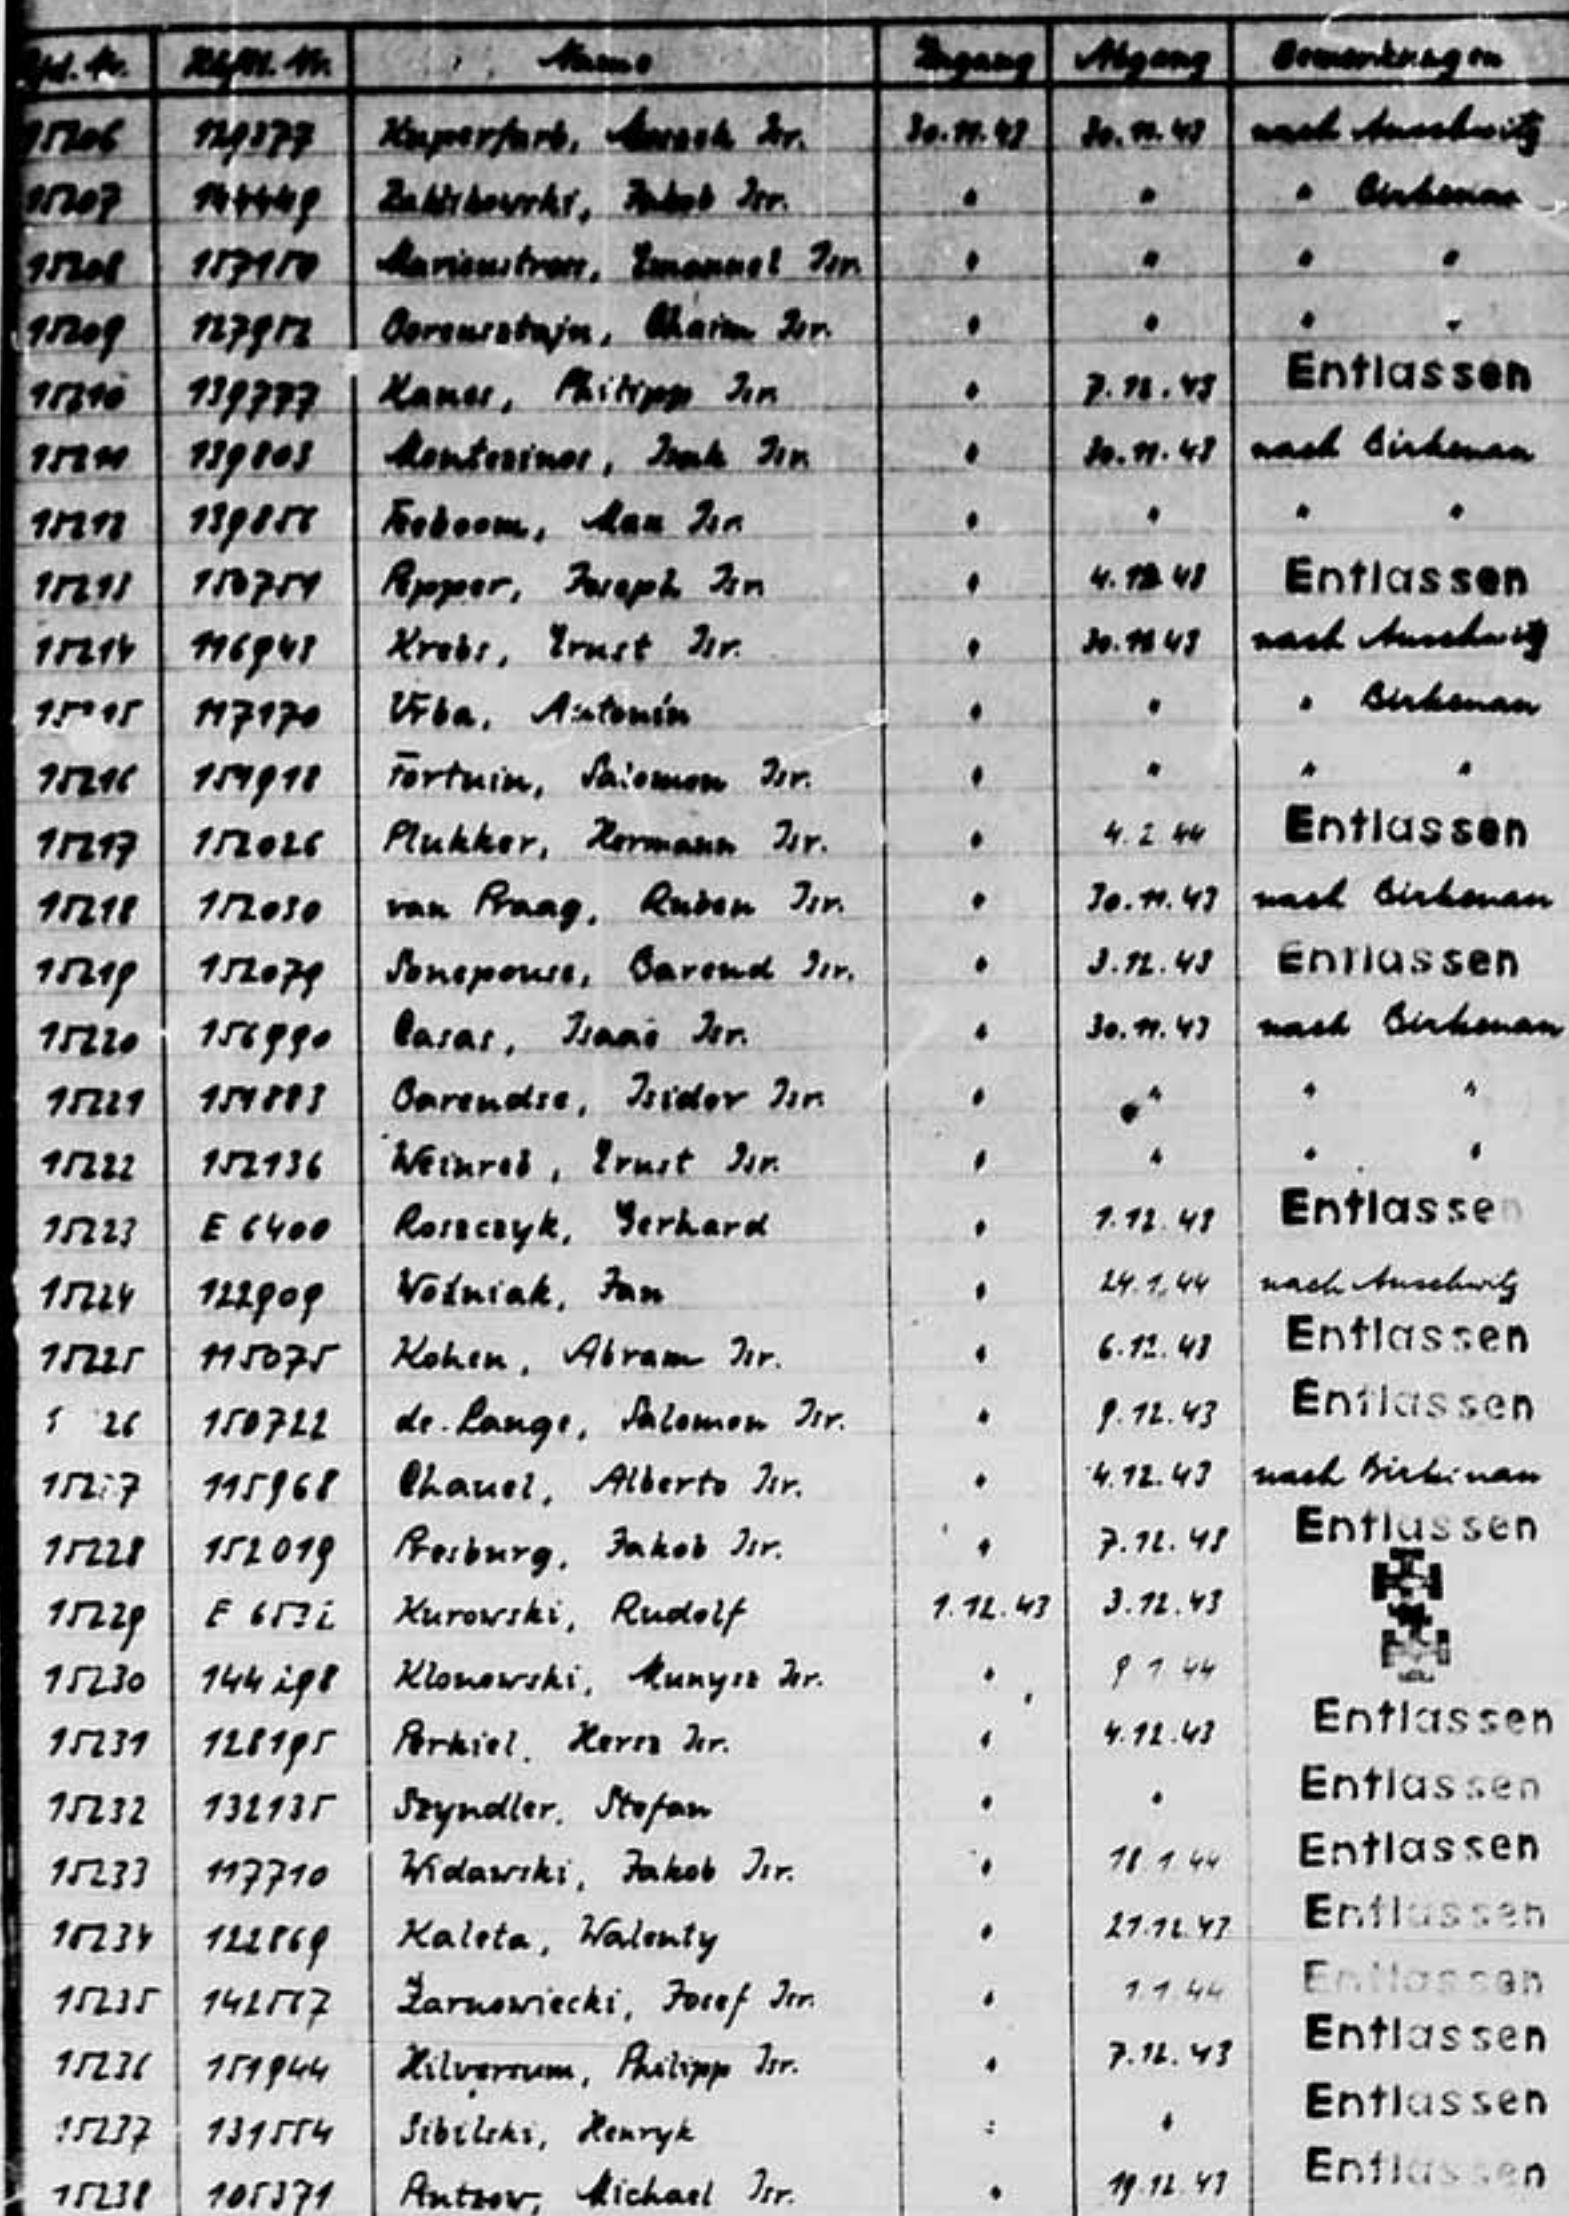 Lfd. Nr. Häftl. Nr. Name Zugang Abgang Bemerkungen
15206 129377 Kuperfarb, Isr. 30.11.43 30.11.43 nach Auschwitz
15207 144449 Jakob Isr. " " " Birkenau
15208 157150 Emanuel Isr. " " " "
15209 127952 Chaim Isr. " " " "
15210 139777 Kanes, Philipp Isr. " 7.12.43 Entlassen
15211 139803 Montezinos, Isak Isr. " 30.11.43 nach Birkenau
15212 Max Isr. " " " "
15213 150751 Pepper, Joseph Isr. " 4.12.43 Entlassen
15214 116943 Krebs, Ernst Isr. " 30.11.43 nach Auschwitz
15215 117170 Vrba, Antonín " " " Birkenau
15216 151918 Fortuin, Salomon Isr. " " " "
15217 152026 Plukker, Hermann Isr. " 4.2.44 Entlassen
15218 152030 van Praag, Ruben Isr. " 30.11.43 nach Birkenau
15219 152079 Barend Isr. " 3.12.43 Entlassen
15220 156990 Casas, Isaac Isr. " 30.11.43 nach Birkenau
15221 151883 Barendse, Isidor Isr. " " " "
15222 152136 Weinreb, Ernst Isr. " " " "
15223 E 6400 Roszczyk, Gerhard " 1.12.43 Entlassen
15224 122909 Woźniak, Jan " 24.1.44 nach Auschwitz
15225 115075 Kohen, Abram Isr. " 6.12.43 Entlassen
1 26 150722 de Lange, Salomon Isr. " 9.12.43 Entlassen
15227 115968 Alberto Isr. " 4.12.43 nach Birkenau
15228 152019 Presburg, Jakob Isr. " 7.12.43 Entlassen
15229 E Kurowski, Rudolf 1.12.43 3.12.43
15230 144298 Klonowski, Munysz Isr. " 9.1.44
15231 128195 Perkiel, Hersz Isr. " 4.12.43 Entlassen
15232 132135 Szyndler, Stefan " " Entlassen
15233 117710 Widawski, Jakob Isr. " 18.1.44 Entlassen
15234 122869 Kaleta, Walenty " 21.12.43 Entlassen
15235 Żarnowiecki, Josef Isr. " 1.1.44 Entlassen
15236 151944 Hilversum, Philipp Isr. " 7.12.43 Entlassen
15237 131554 Sibilski, Henryk " " Entlassen
15238 105371 Michael Isr. " 19.12.43 Entlassen